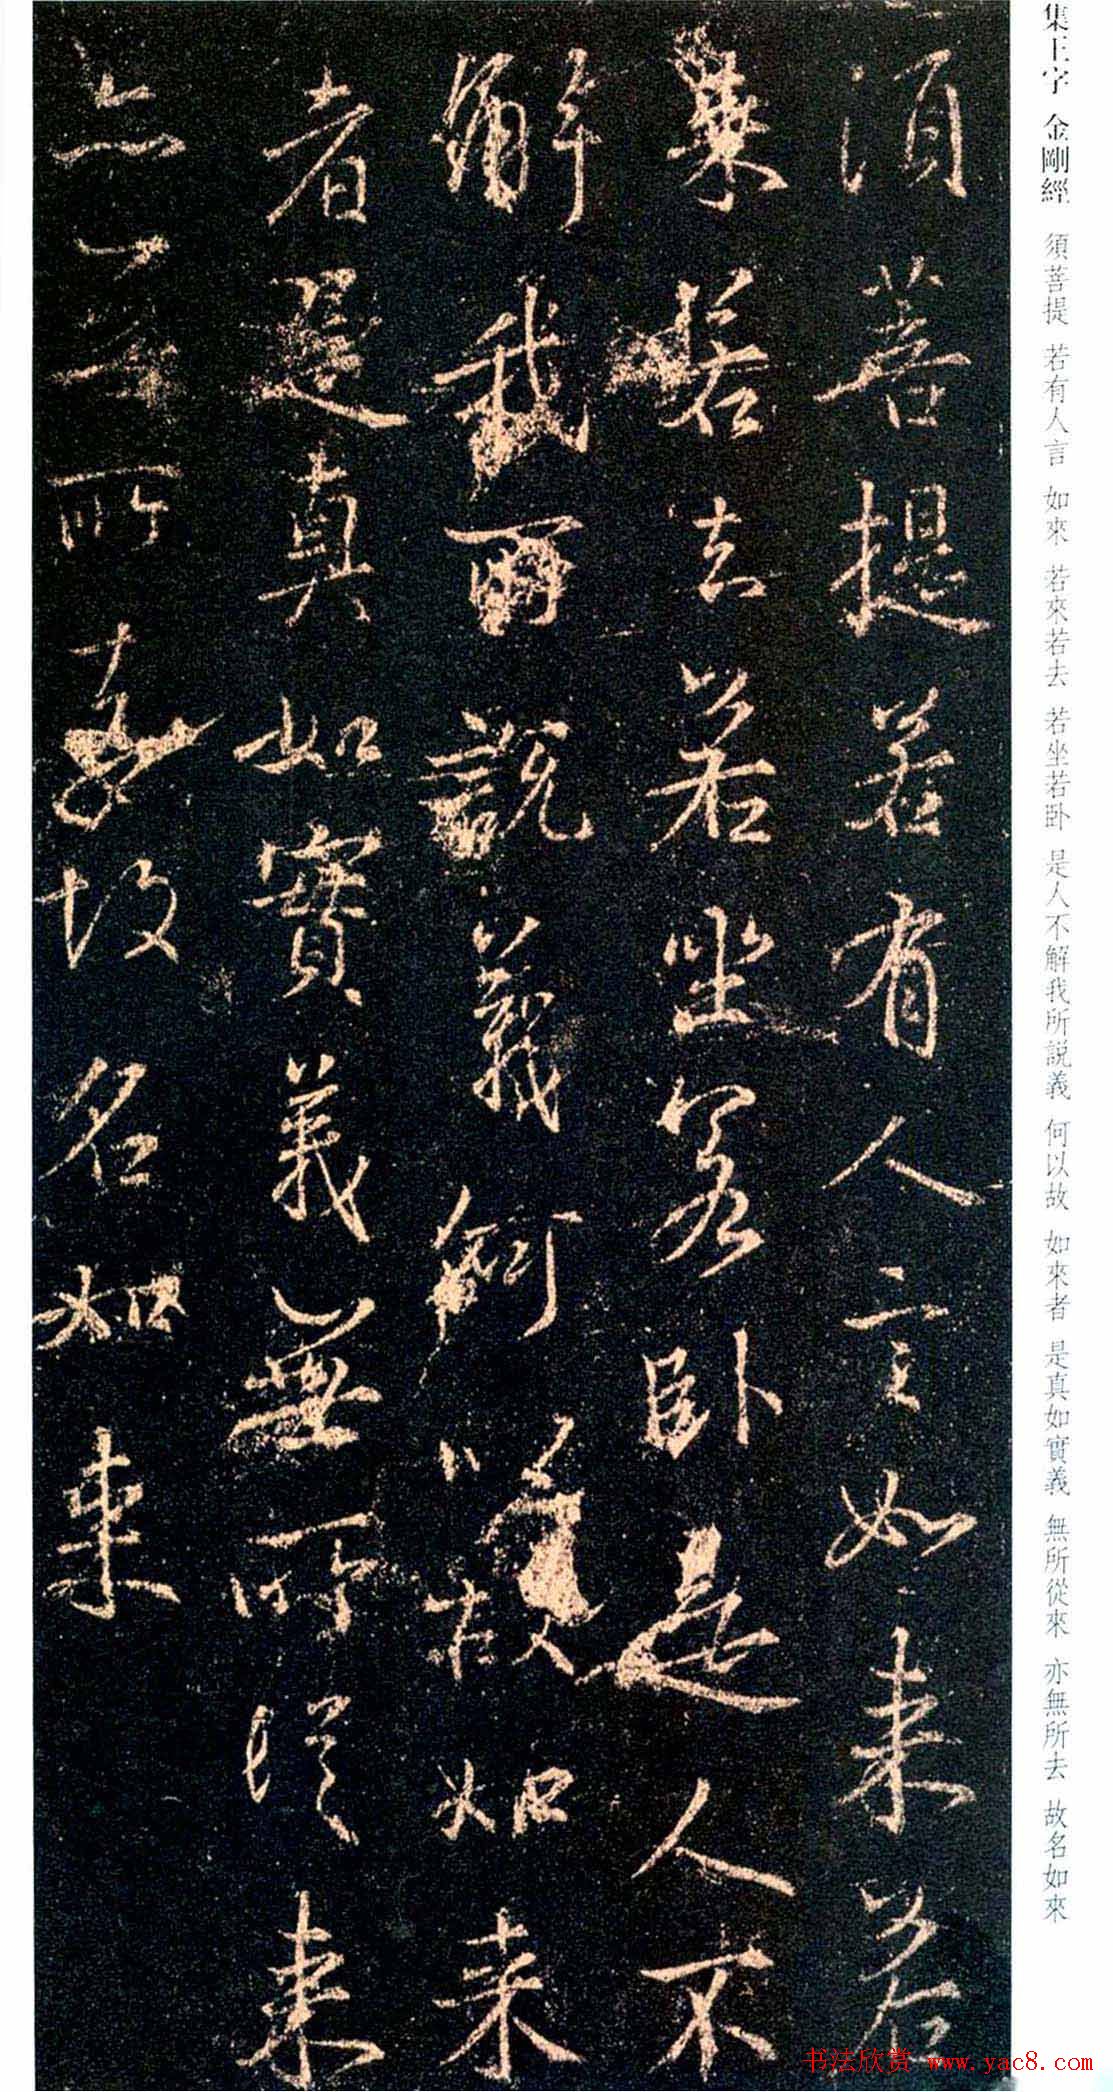 集王字 金剛經 須菩提 若有人言 如來 若來若去 若坐若卧 是人不解我所説義 何以故 如來者 是真如實義 無所從來 亦無所去 故名如來
須菩提若有人言如来若
来若去若坐若卧是人不
解我所説義何以故如来
者是真如實義無所從来
亦無所去故名如来
书法欣赏 www.yac8.com